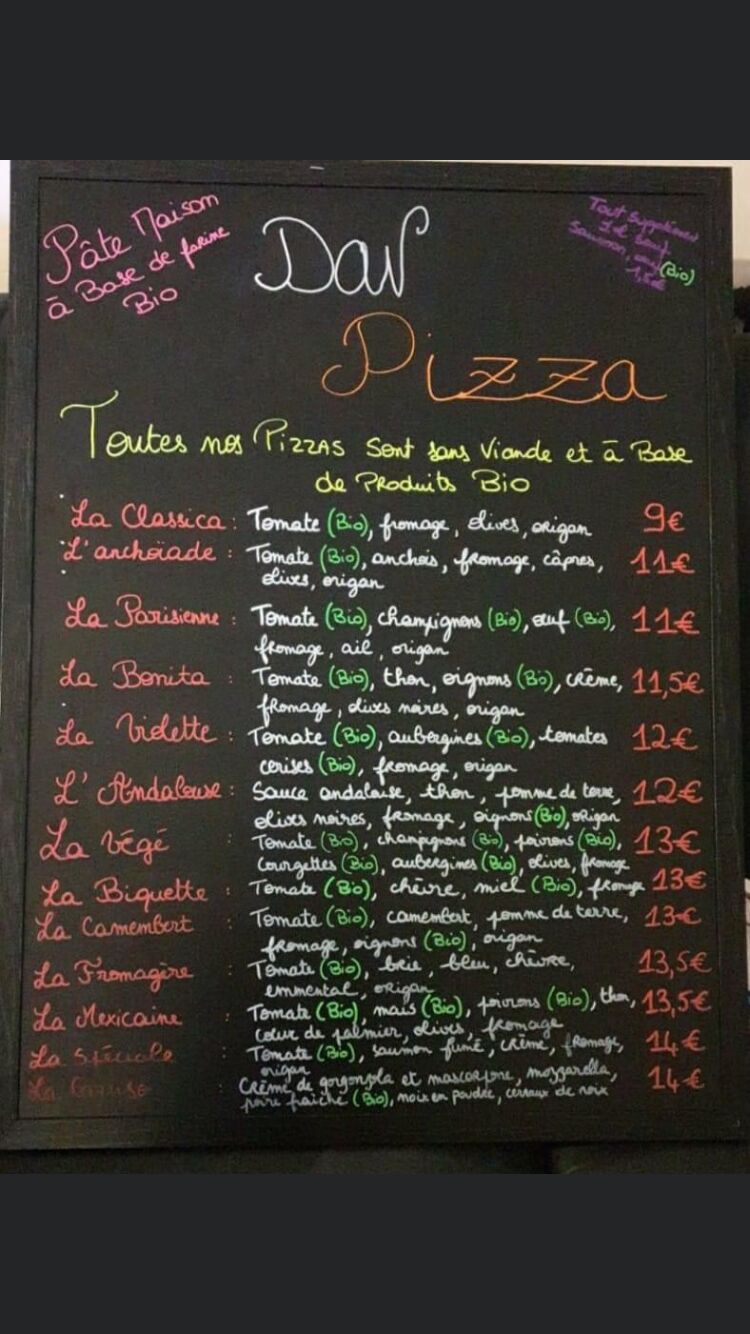 Pâte Maison
à Base de farine
Bio
Dar
Pizza
Tout Supplément
1€ sauf
Saumon, œuf (Bio)
1,5€
Toutes nos Pizzas sont sans Viande et à Base
de Produits Bio
La Classica : Tomate (Bio), fromage, olives, origan 9€
L'anchoïade : Tomate (Bio), anchois, fromage, câpres, 11€
olives, origan
La Parisienne : Tomate (Bio), champignons (Bio), œuf (Bio), 11€
fromage, ail, origan
La Bonita : Tomate (Bio), thon, oignons (Bio), crème, 11,5€
fromage, olives noires, origan
La Violette : Tomate (Bio), aubergines (Bio), tomates 12€
cerises (Bio), fromage, origan
L'Andalouse : Sauce andalaise, thon, pomme de terre, 12€
olives noires, fromage, oignons (Bio), origan
La Végé : Tomate (Bio), champignons (Bio), poivrons (Bio), 13€
Courgettes (Bio), aubergines (Bio), olives, fromage
La Biquette : Tomate (Bio), chèvre, miel (Bio), fromage 13€
La Camembert : Tomate (Bio), camembert, pomme de terre, 13€
fromage, oignons (Bio), origan
La Fromagère : Tomate (Bio), brie, bleu, chèvre, 13,5€
emmental, origan
La Mexicaine : Tomate (Bio), maïs (Bio), poivrons (Bio), thon, 13,5€
cœur de palmier, olives, fromage
La Spéciale : Tomate (Bio), saumon fumé, crème, fromage, 14€
origan
La : Crème de gorgonzola et mascarpone, mozzarella, 14€
poire fraîche (Bio), noix en poudre, cerneaux de noix